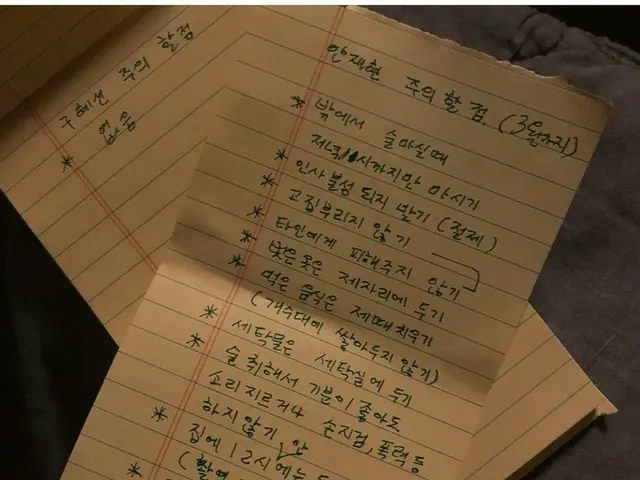 구혜선 주의 할점
* 없음
안재현 주의 할 점. (3월까지)
* 밖에서 술마실때
저녁11시까지만 마시기
* 인사불성 되지 말기 (절제)
* 고집부리지 않기
* 타인에게 피해주지 않기
* 벗은 옷은 제자리에 두기
* 먹은 음식은 제때 치우기
(개수대에 쌓아두지 않기)
* 세탁물은 세탁실에 두기
* 술 취해서 기분이 좋아도
소리지르거나 손지검, 폭력 등
하지않기
* 집에 12시에는
* (촬영